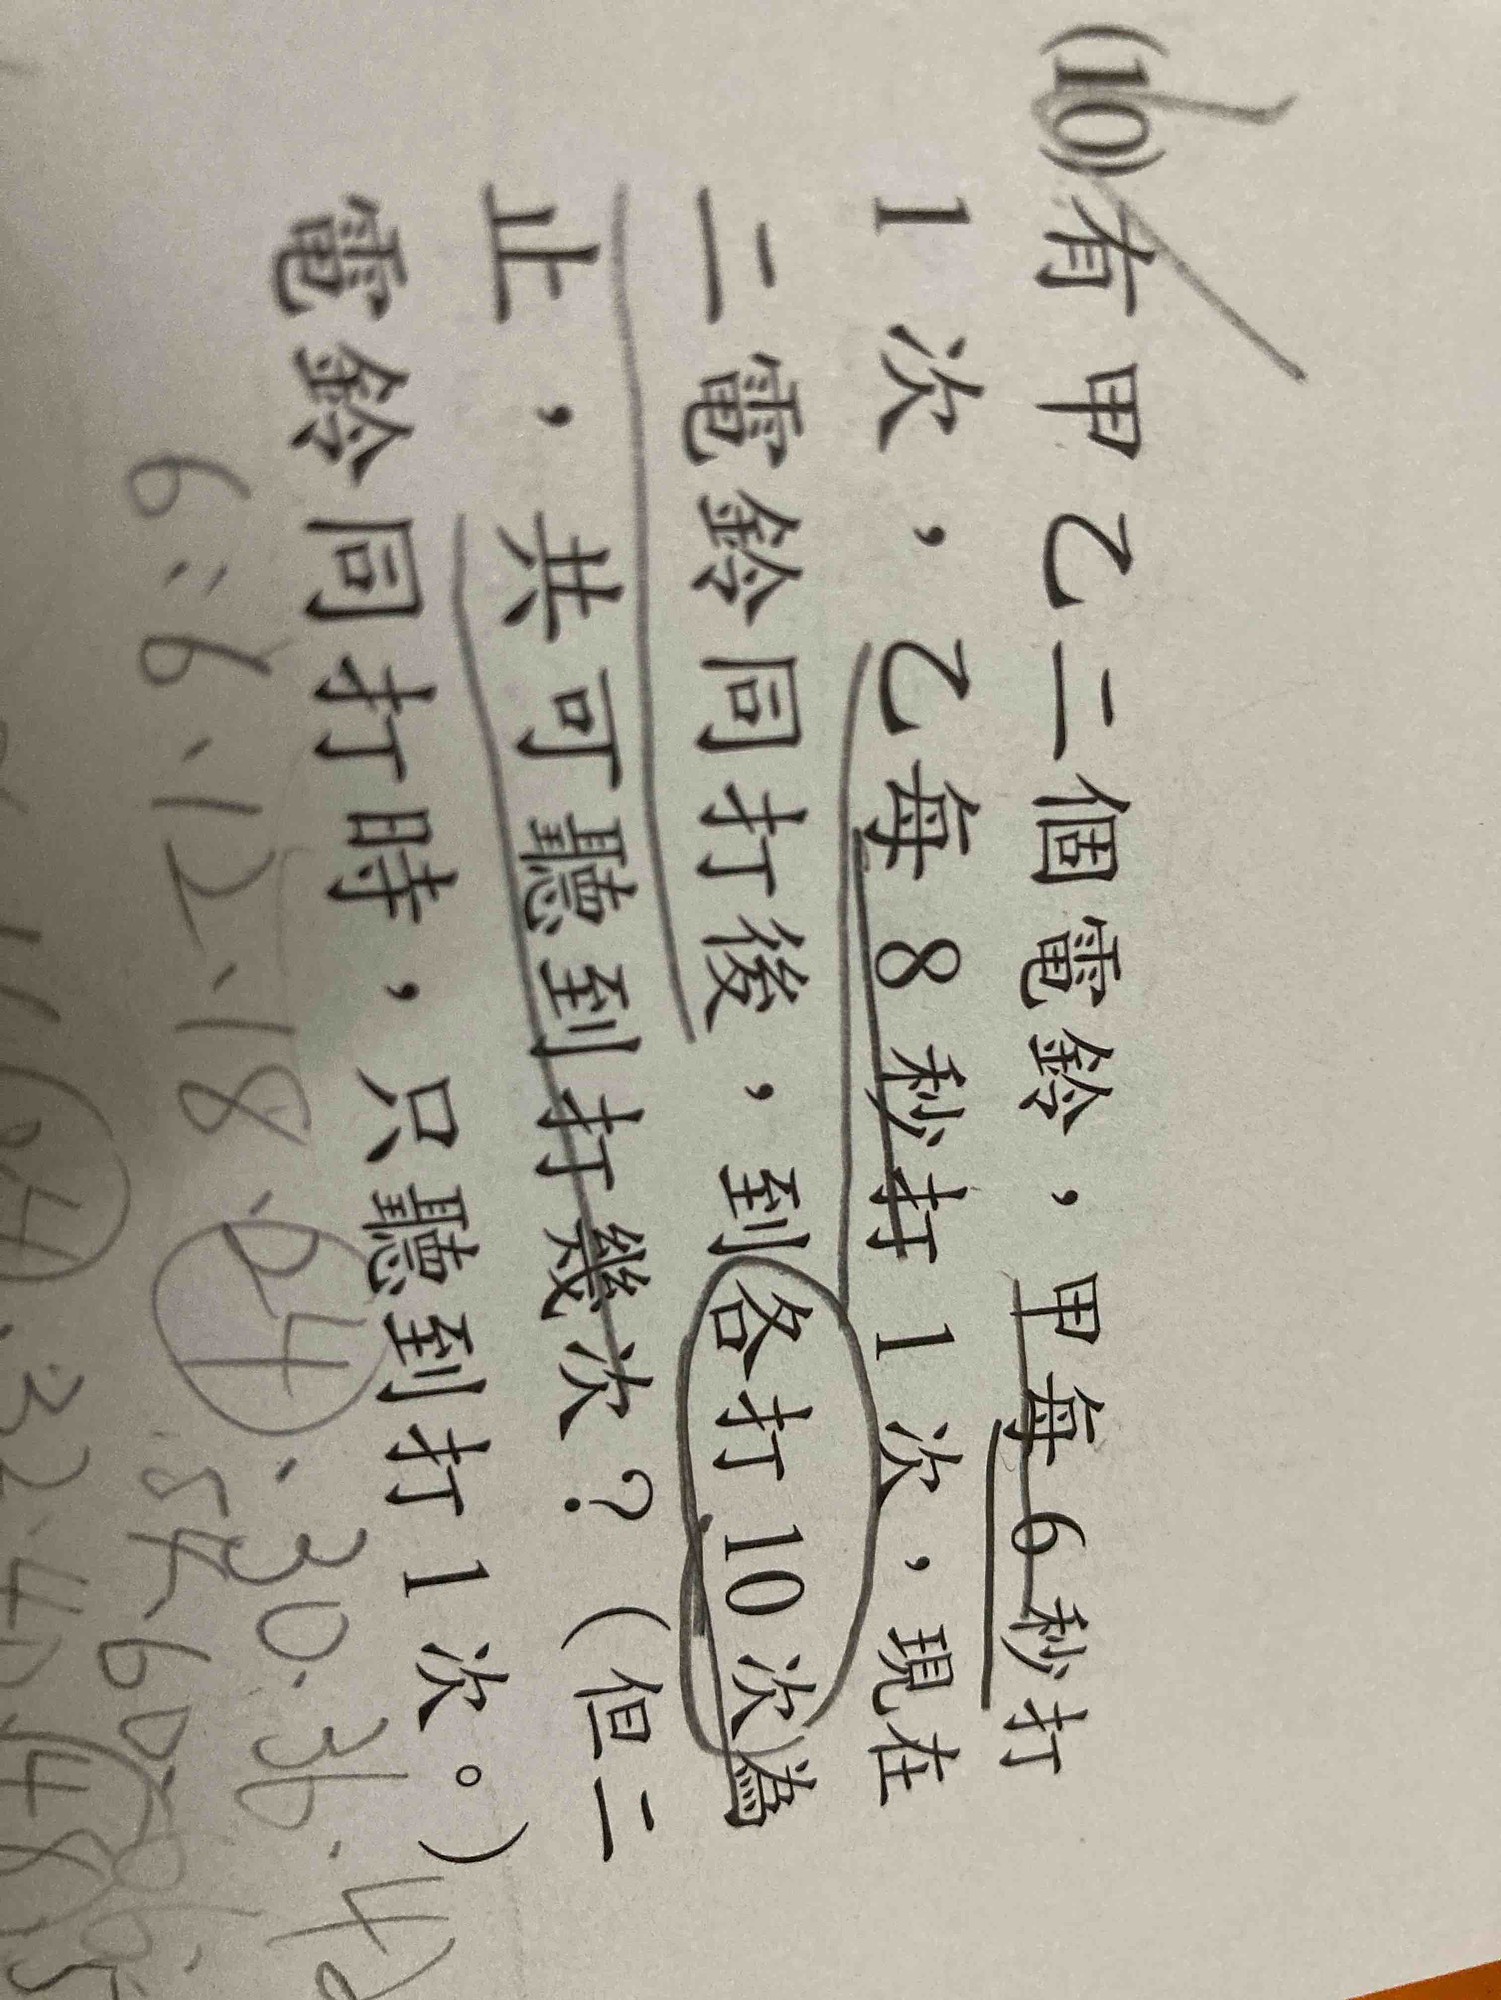 (10)有甲乙二個電鈴，甲每6秒打
1次，乙每8秒打1次，現在
二電鈴同打後，到各打10次為
止，共可聽到打幾次？(但二
電鈴同打時，只聽到打1次。)
6：6、12、18、24、30、36、42